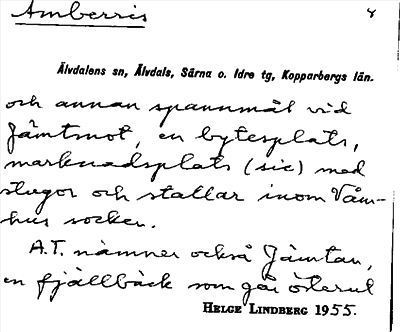 Åmberris 8
Älvdalens sn, Älvdals, Särna o. Idre tg, Kopparbergs län.
och annan spannmål vid
Jämtmot, en bytesplats,
marknadsplats (sic) med
stugor och stallar inom Våm-
hus socken.
A.T. nämner också Jämtan,
en fjällbäck som går österut
HELGE LINDBERG 1955.